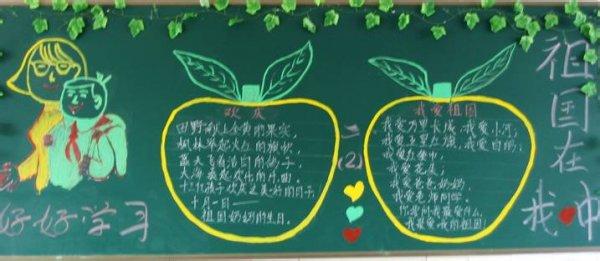 好好学习
欢庆
田野商量金黄的果实,
枫林举起火红的旗帜,
蓝天飞着洁白的鸽子,
大海奏起欢乐的
十三亿孩子欢庆这美好的日子,
十月一日——
祖国妈妈的生日。
二
(2)
我爱祖国
我爱万里长城,我爱小河;
我爱五星红旗,我爱白鸽;
我爱
我爱花皮;
我爱爸爸奶奶,
我爱老师同学。
你若问我最爱什么,
我最爱,我的祖国!
祖国在
我中